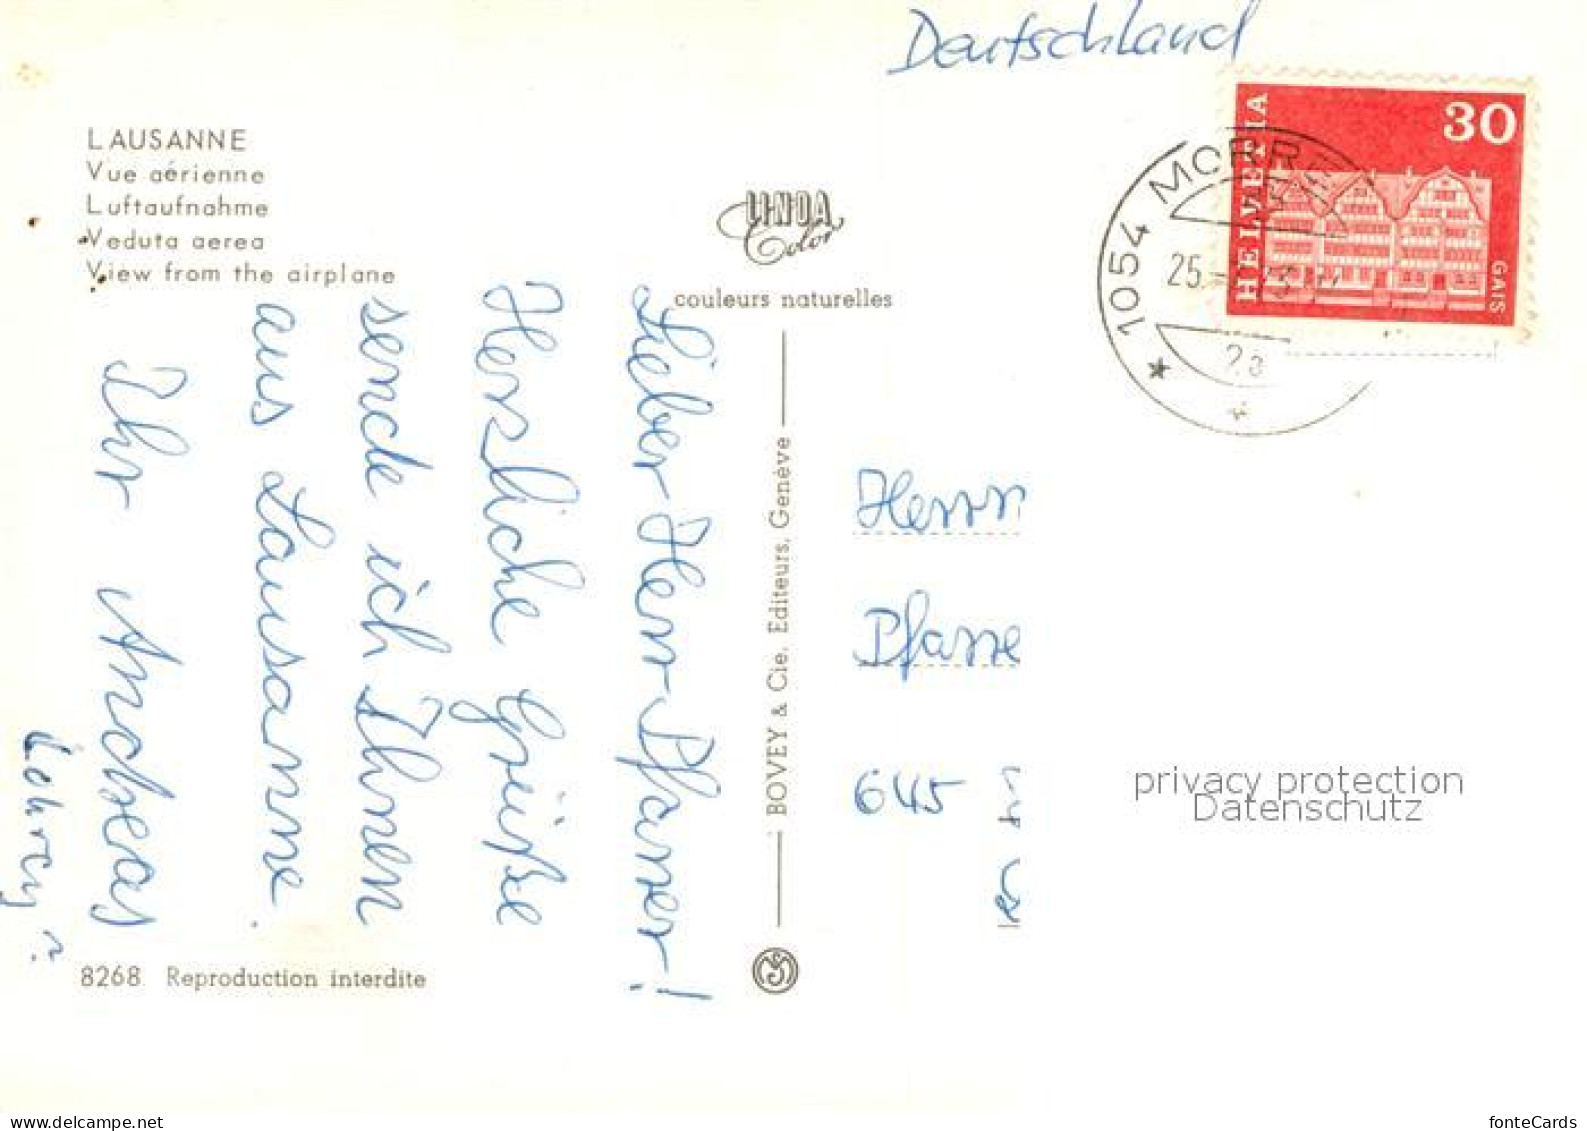 Deutschland
HELVETIA
30
GAIS
1054 MORR
25.
LAUSANNE
Vue aérienne
Luftaufnahme
Veduta aerea
View from the airplane
LINDA
Color
couleurs naturelles
Lieber Herr Pfarrer!
Herzliche Grüße
sende ich Ihnen
aus Lausanne.
Ihr Andreas
BOVEY & Cie, Editeurs, Genève
Herrn
Pfarre
645
privacy protection
Datenschutz
8268 Reproduction interdite
www.delcampe.net
fonteCards